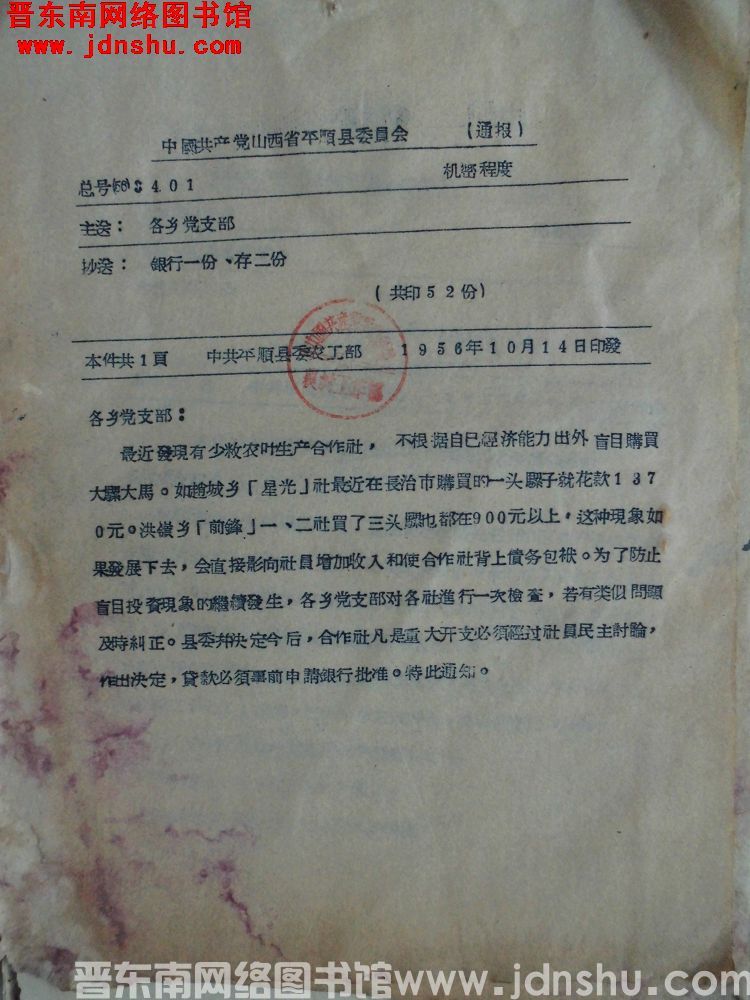 晋东南网络图书馆
www.jdnshu.com
中國共产党山西省平順县委員会 (通报)
总号(56)3401 机密程度
主送： 各乡党支部
抄送： 銀行一份、存二份
(共印52份)
本件共1頁 中共平順县委农工部 1956年10月14日印發
各乡党支部：
最近發現有少数农叶生产合作社，不根据自已經济能力出外盲目購買
大騾大馬。如趙城乡「星光」社最近在長治市購買的一头騾子就花款137
0元。洪嶺乡「前鋒」一、二社買了三头騾也都在900元以上，这种現象如
果發展下去，会直接影向社員增加收入和使合作社背上債务包袱。为了防止
盲目投資現象的繼續發生，各乡党支部对各社進行一次檢查，若有类似問題
及時糾正。县委并决定今后，合作社凡是重大开支必須經过社員民主討論，
作出决定，貸款必須事前申請銀行批准。特此通知。
晋东南网络图书馆 www.jdnshu.com